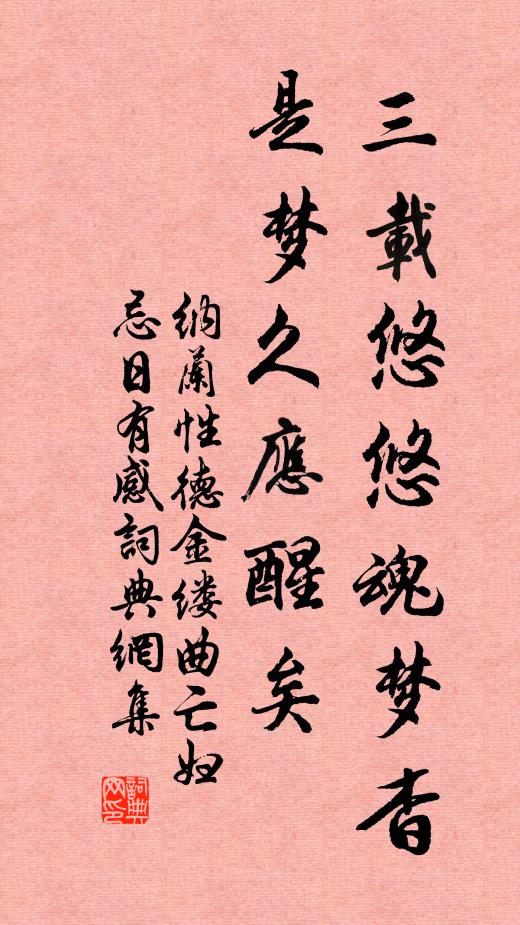 三載悠悠魂梦杳
是梦久應醒矣
纳蘭性德金缕曲亡妇
忌日有感詞典網集
詞典
网印